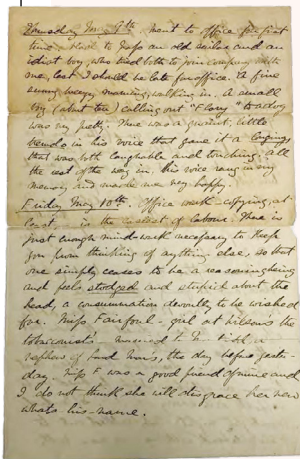 Thursday May 9th. Went to office for first
time. Had to pass an old sailor and an
idiot boy, who tried both to join company with
me, lest I should be late for office. A fine
sunny breezy morning, walking in. A small
boy (about ten) calling out "Flory" to a dog
was very pretty. There was a quaint, little
in his voice that gave it a longing,
that was both laughable and touching. All
the rest of the way in, his voice rang in my
memory and made me very happy.
Friday May 10th. Office work - copying, at
least - is the easiest of labour. There is
just enough mind-work necessary to keep
you from thinking of anything else, so that
one simply ceases to be a reasoning being
and feels stodged and stupid about the
head, a consummation devoutly to be wished
for. Miss Fairfoul - girl at Wilson's the
tobacconist's - married to a
nephew of the day before yester-
day. Miss F was a good friend of mine and
I do not think she will disgrace her new
whats-his-name.